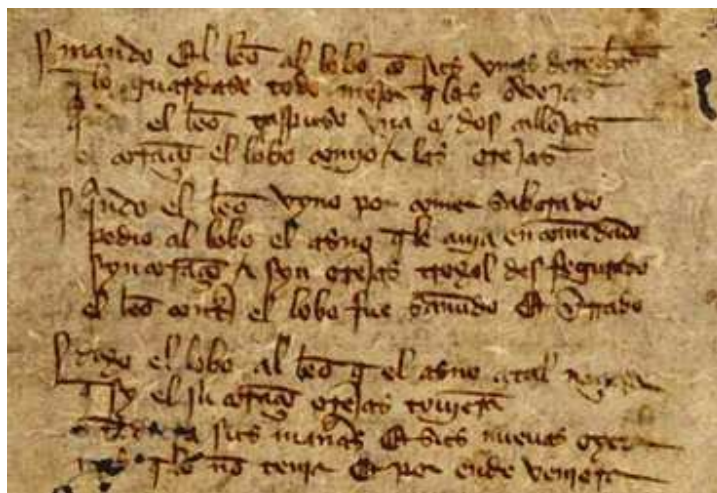 mando El leō al lobo cō sus vnas
q̄ lo guardase todo mejor q̄ las ovejas
el leō traspuso vna o dos callejas
el coraçō el lobo comyo & las orejas
qndo el leō vyno por comer saborado
pedio al lobo el asno q̄ le avya encomēdado
syn coraçō & syn orejas troxol desfegurado
el leō cont̄ el lobo fue sānudo Et yrado
dixo el lobo al leō q̄ el asno atal
q̄ sy el su coraçō orejas toviera
sus mañas Et sus nuevas oyer
q̄ nō tenja Et por ende veniera